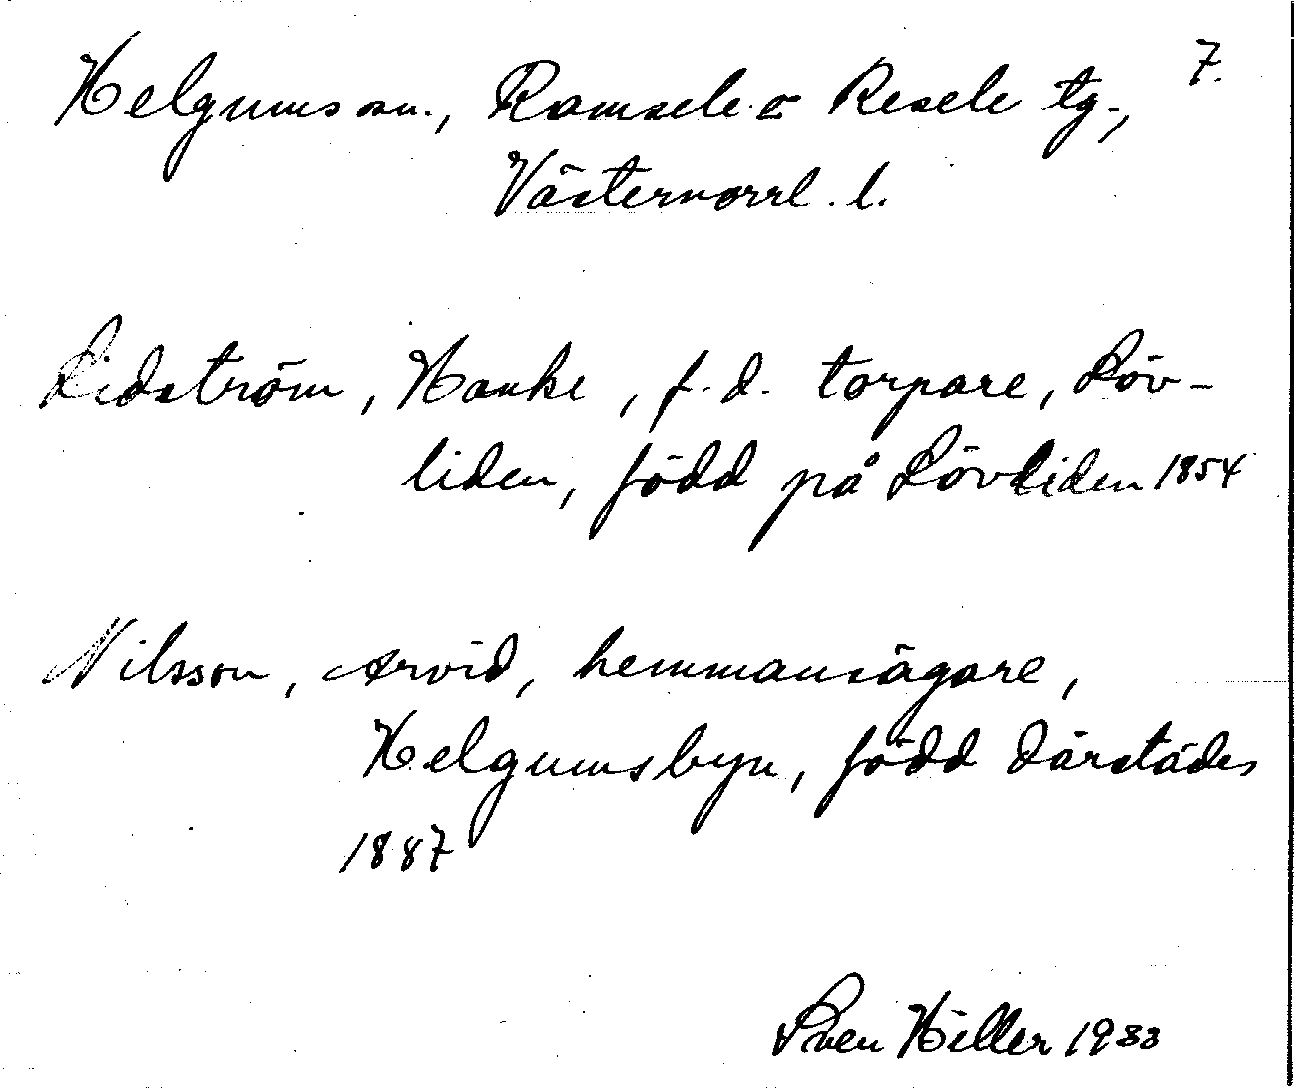 Helgums sn., Ramsele o Resele tg., 7.
Västernorrl. l.
Lidström, Hanke, f.d. torpare, Löv-
liden, född på Lövliden 1854
Nilsson, Arvid, hemmansägare,
Helgumsbyn, född därstädes
1887
Sven Hiller 1933